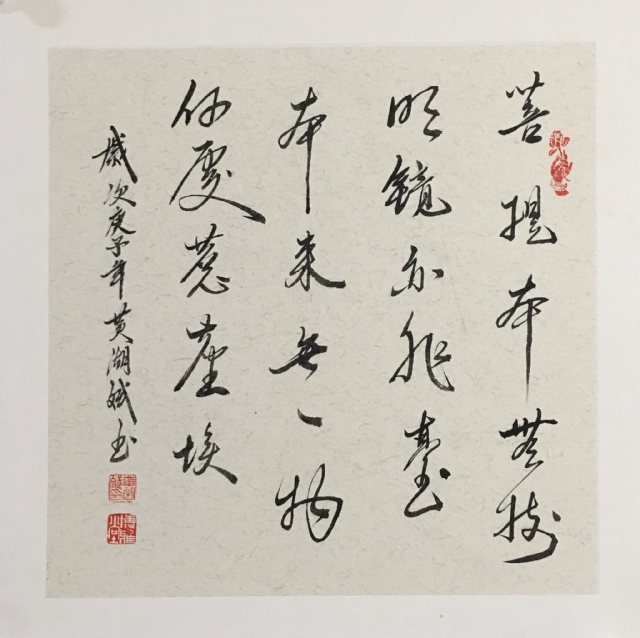 菩提本無樹
明鏡亦非臺
本來無一物
何處惹塵埃
歲次庚子年黄湖